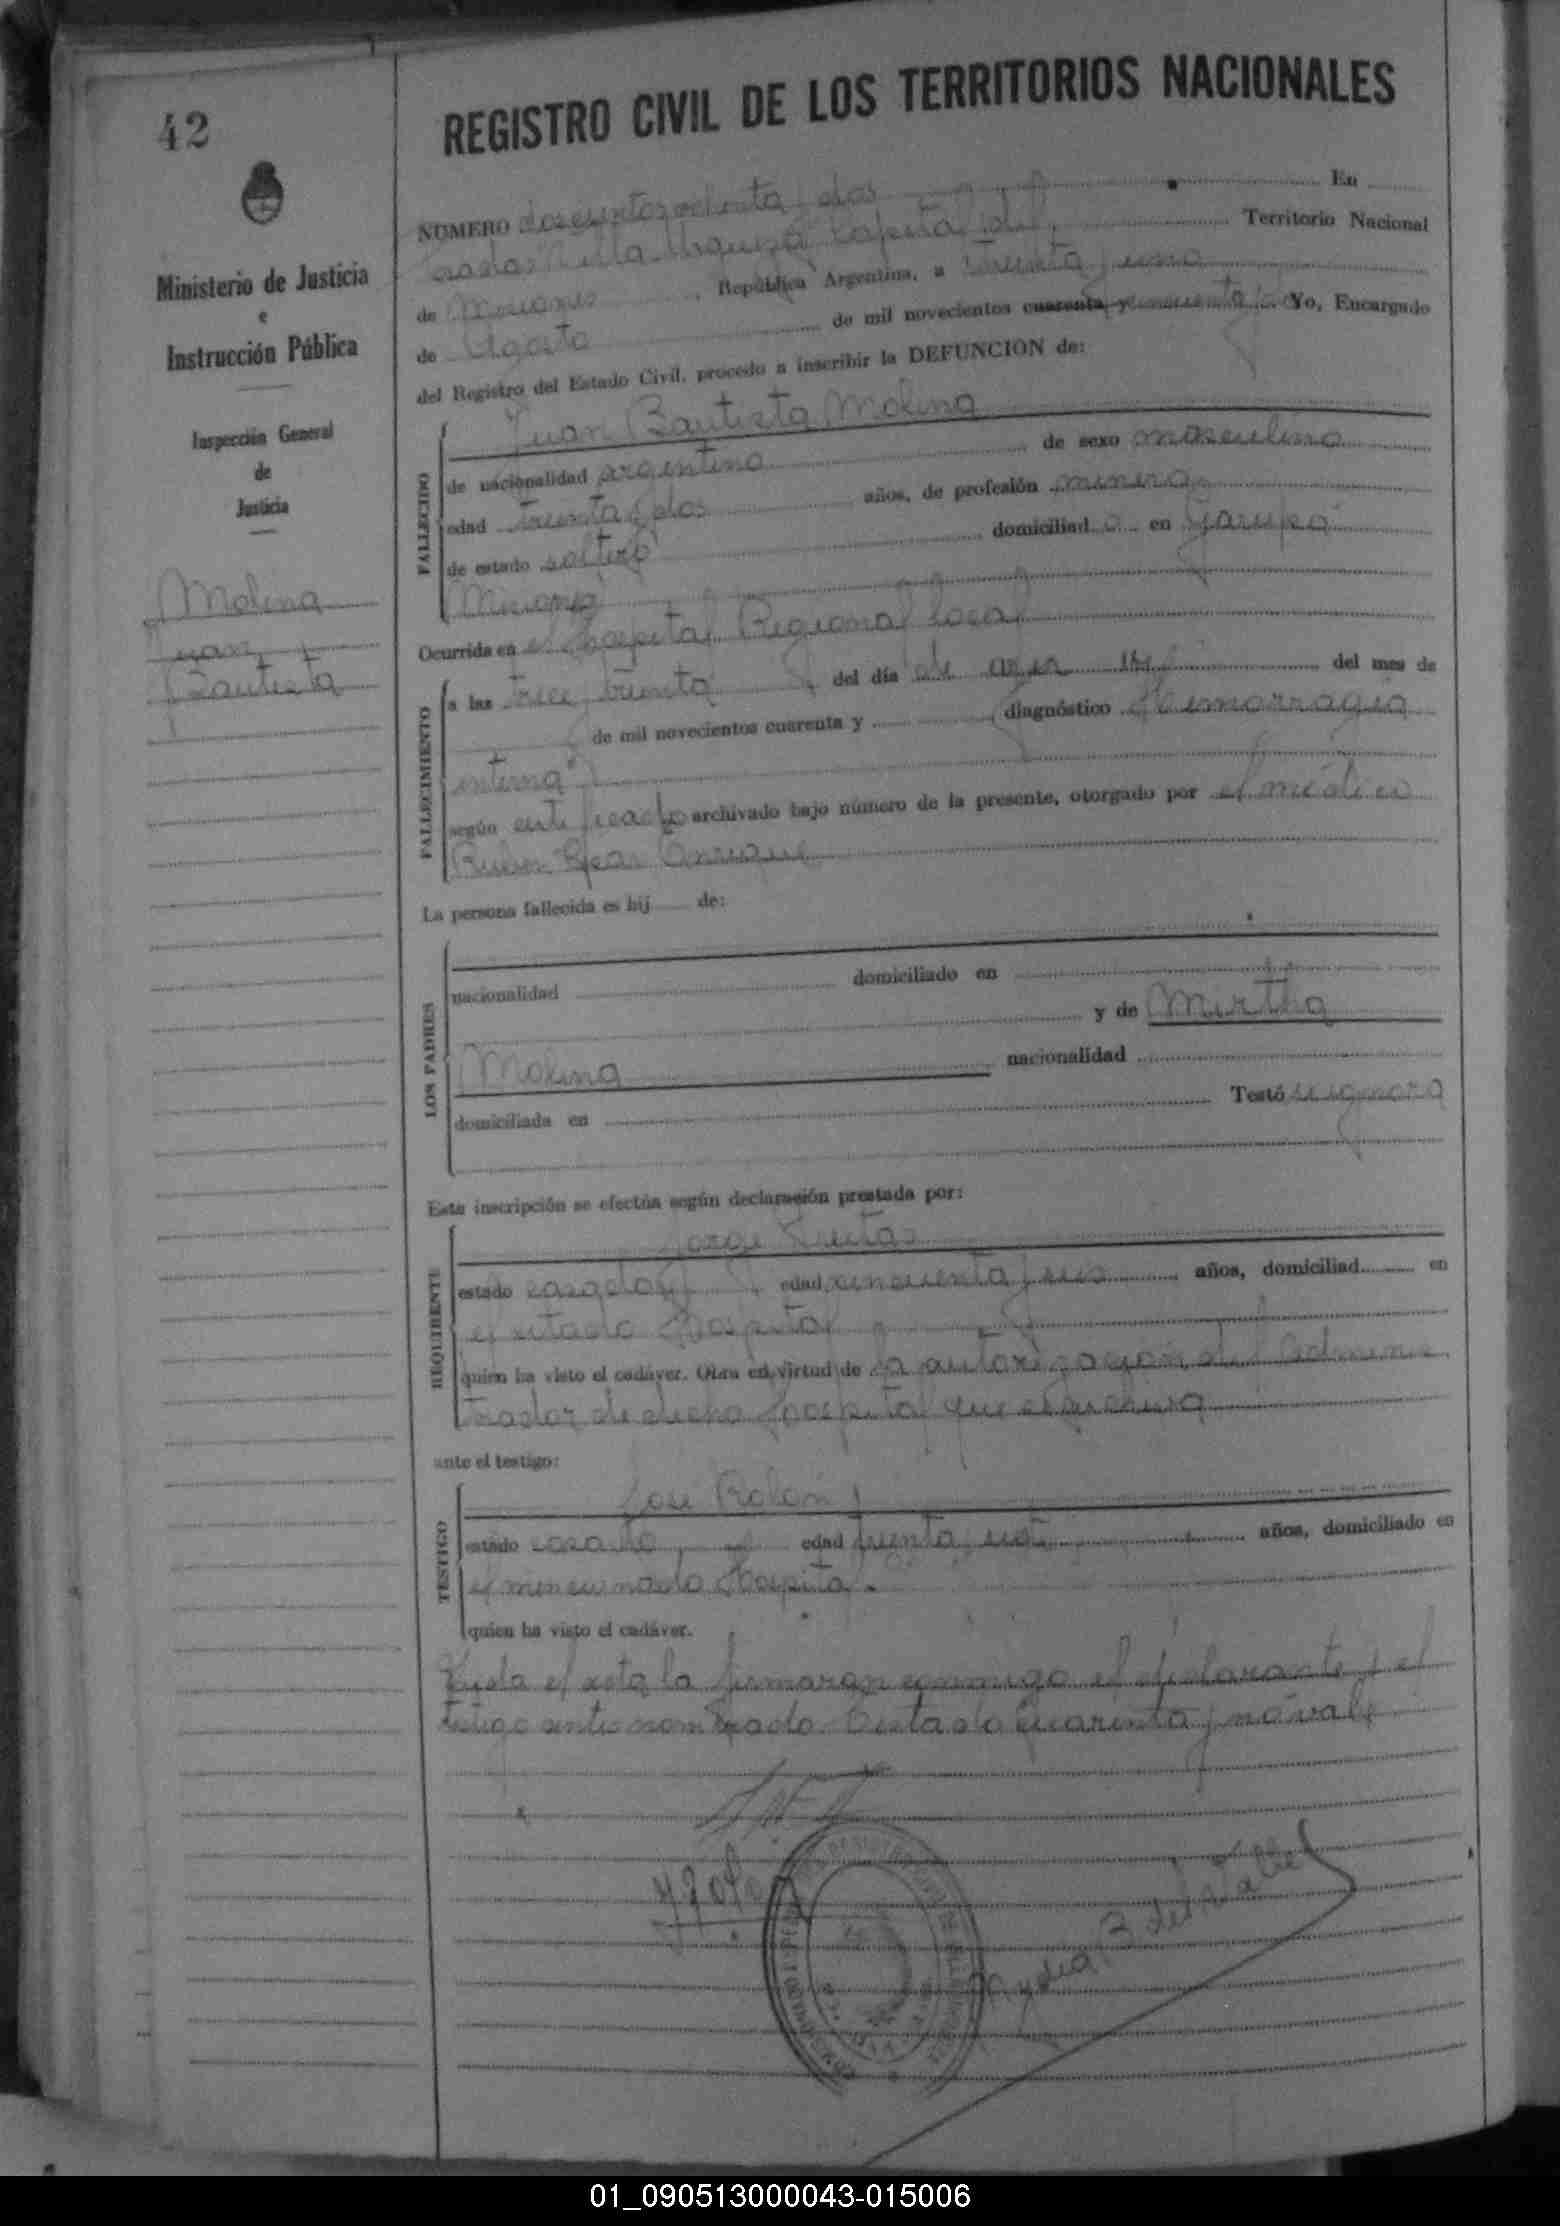 42
REGISTRO CIVIL DE LOS TERRITORIOS NACIONALES
Ministerio de Justicia
e
Instrucción Pública
Inspección General
de
Justicia
Molina
Juan
Bautista
NUMERO doscientos ochenta y dos En
Posadas Villa Urquiza Capital del Territorio Nacional
de Misiones, República Argentina, a treinta y uno
de Agosto de mil novecientos cuarenta y cincuenta Yo, Encargado
del Registro del Estado Civil, procedo a inscribir la DEFUNCION de:
FALLECIDO
Juan Bautista Molina
de nacionalidad argentino de sexo masculino
edad treinta y dos años, de profesión minero
de estado soltero domiciliado en Garupá
Misiones
Ocurrida en el Hospital Regional local
FALLECIMIENTO
a las trece y treinta del día de ayer del mes de
de mil novecientos cuarenta y diagnóstico "Hemorragia
interna"
según certificado archivado bajo número de la presente, otorgado por el médico
Ruben
La persona fallecida es hij de:
LOS PADRES
nacionalidad domiciliado en
y de Mirtha
Molina nacionalidad
domiciliada en Testó se ignora
Esta inscripción se efectúa según declaración prestada por:
REQUIRENTE
Jorge
estado casado edad cincuenta y seis años, domiciliad en
el citado Hospital
quien ha visto el cadáver. Obra en virtud de la autorización del Adminis
trador de dicho Hospital que se archiva
ante el testigo:
TESTIGO
José Rolón
estado casado edad treinta años, domiciliado en
el mencionado Hospital.
quien ha visto el cadáver.
Leida el acta la firmaran conmigo el declarante y el
testigo antes nombrado. Testado cuarenta y no vale
del Valle
01_090513000043-015006